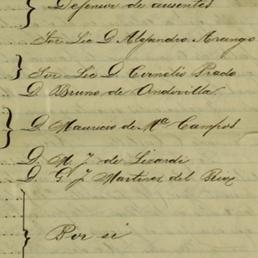 Defensor de ausentes
Sor Lic D. Alejandro Arango
Sor Lic D. Cornelio Prado
D. Bruno de Ondovilla
D. Mauricio de Mª Campos
D. M. J. de Lizardi
D. G. J. Martinez del Rio
Por si